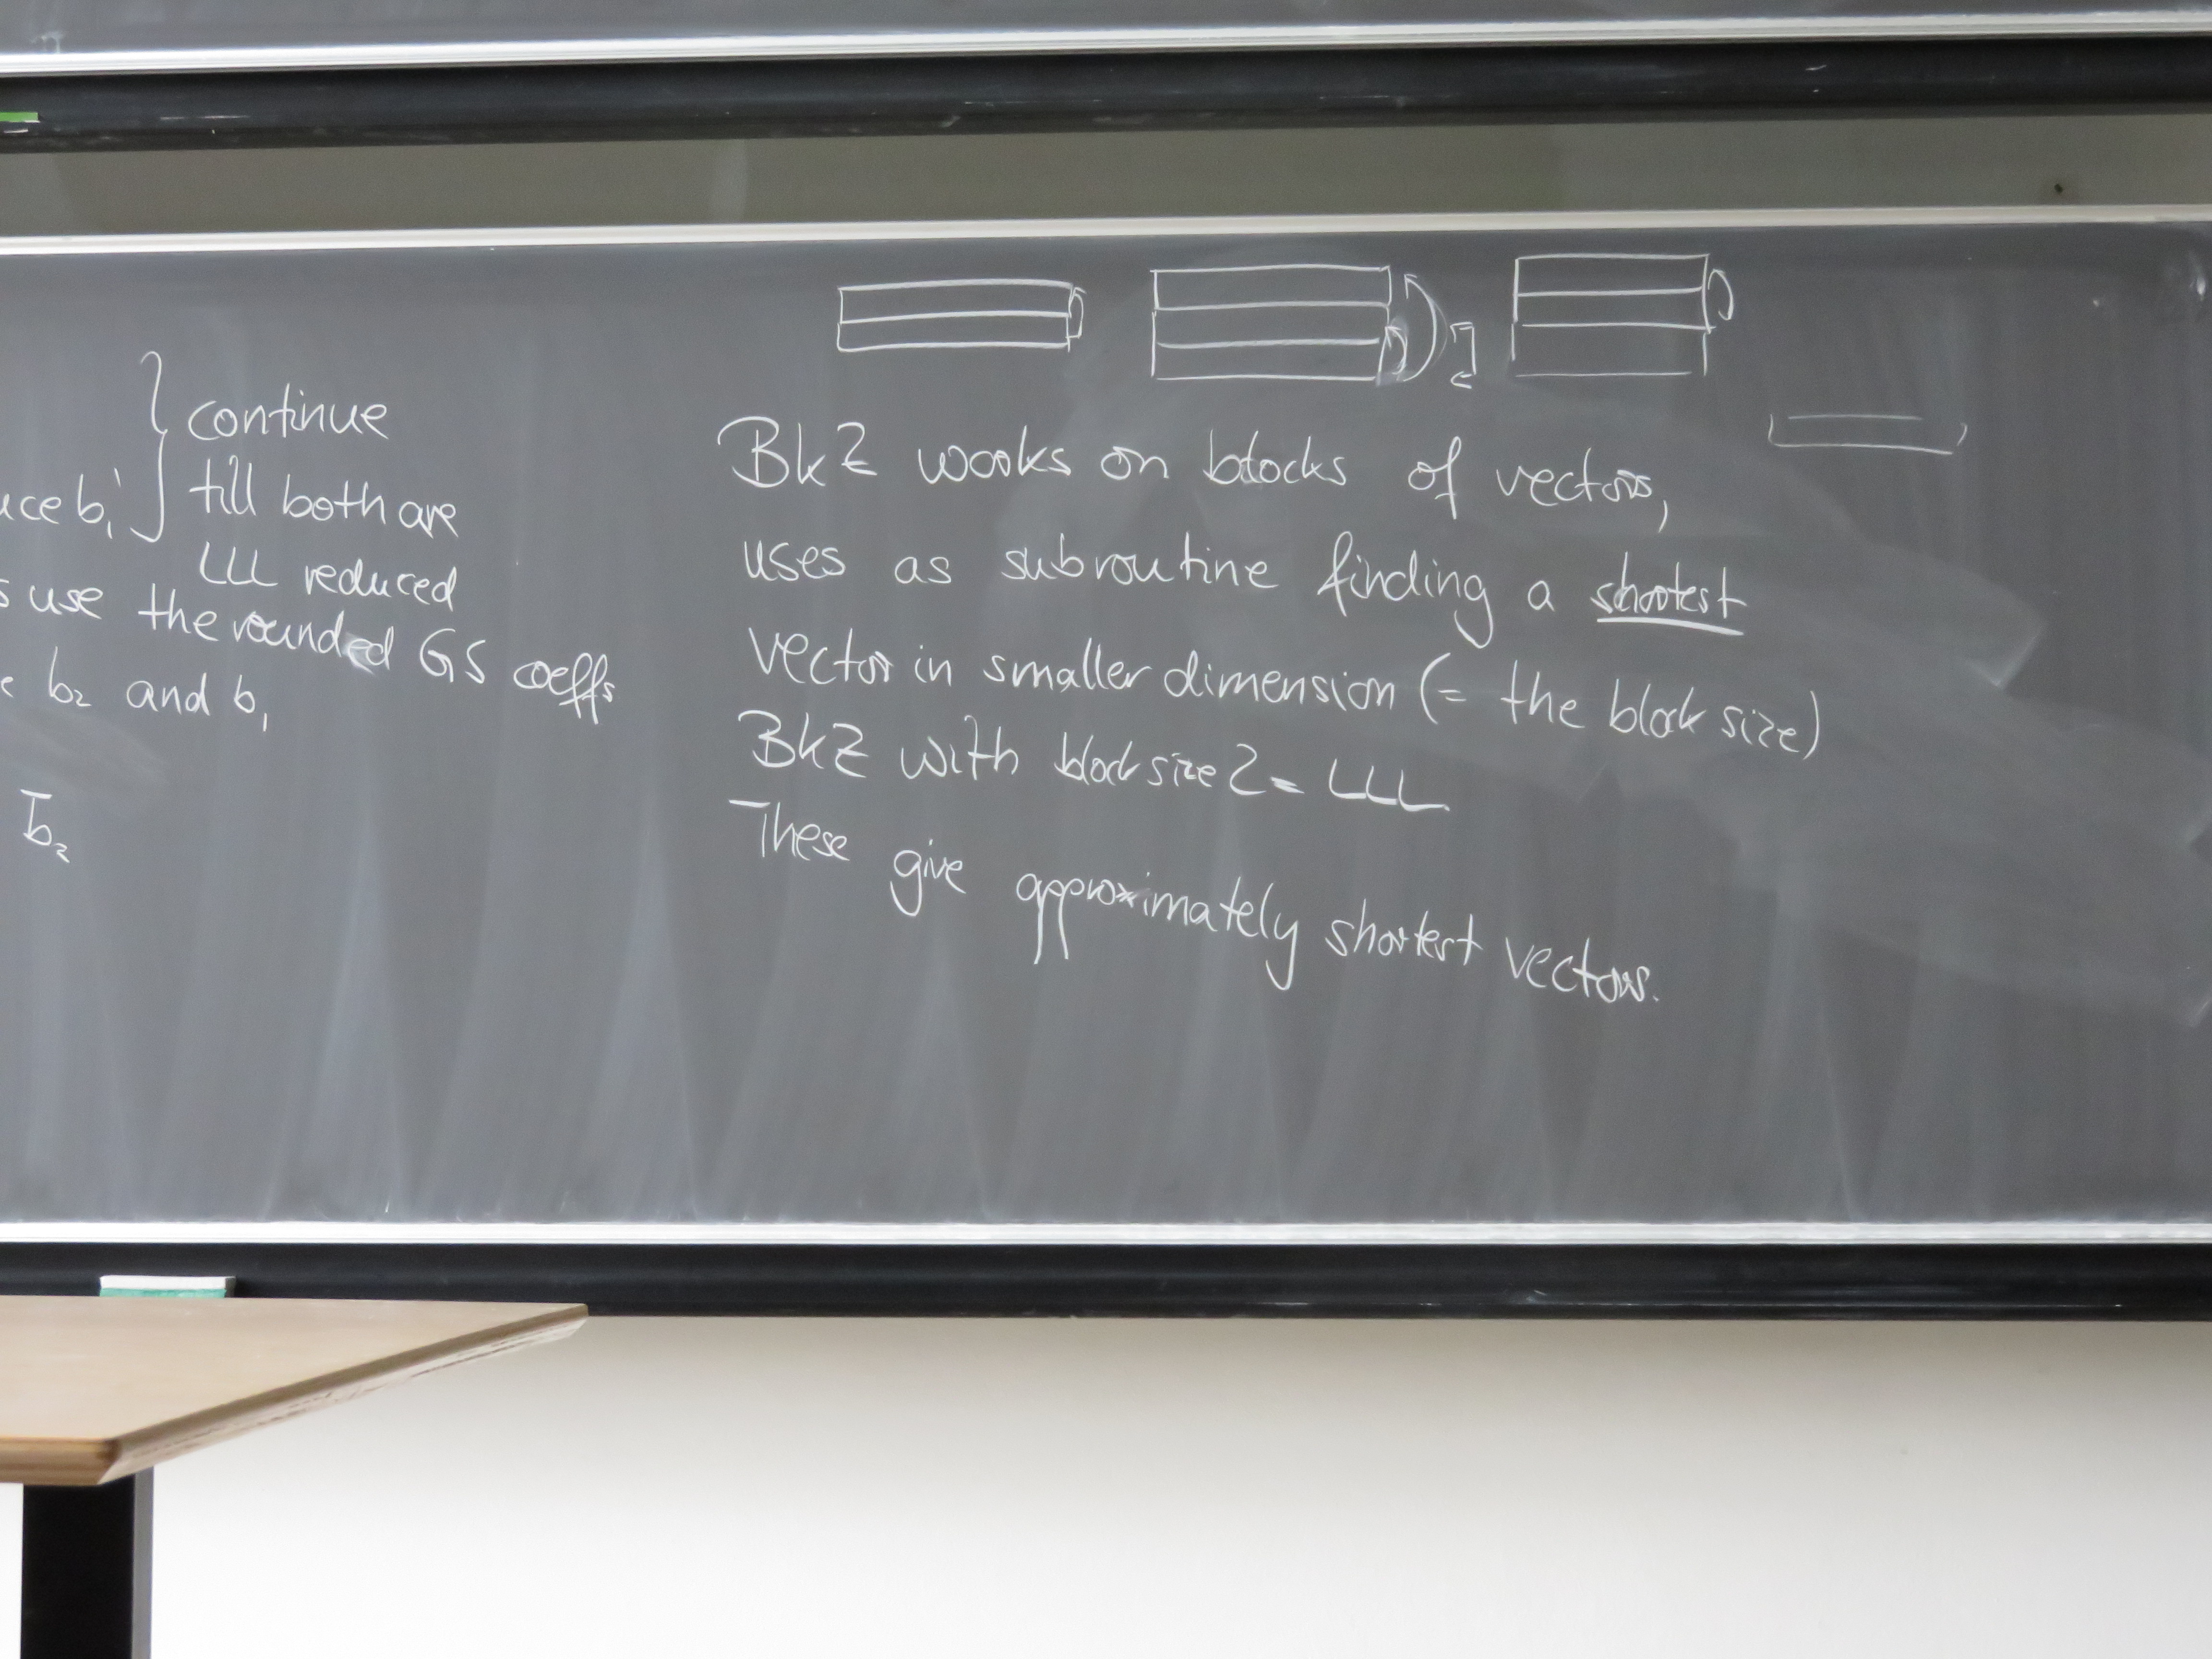 continue
till both are
uce b₁'
LLL reduced
s use the rounded GS coeffs
e b₂ and b₁
b₂
BKZ works on blocks of vectors,
uses as subroutine finding a shortest
vector in smaller dimension (= the block size)
BKZ with block size 2 = LLL.
These give approximately shortest vectors.